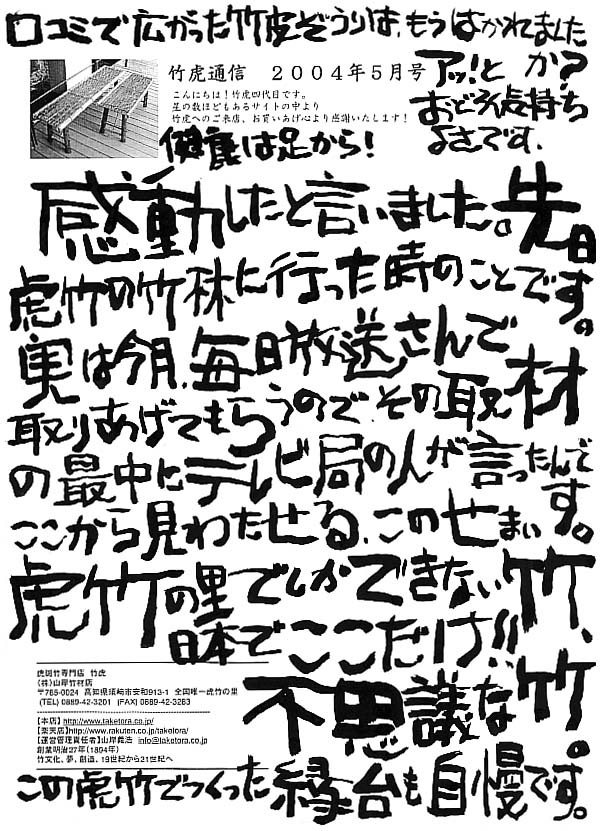 口コミで広がった竹皮ぞうりは、もうはかれました
か?
アッ!と
おどろく気持ち
よさです、
竹虎通信 2004年5月号
こんにちは!竹虎四代目です。
星の数ほどもあるサイトの中より
竹虎へのご来店、お買いあげ心より感謝いたします!
健康は足から!
感動したと言いました。先日
虎竹の竹林に行った時のことです。
実は今月、毎日放送さんで
取りあげてもらうので、その取材
の最中にテレビ局の人が言ったんです。
ここから見わたせる、このせまい
虎竹の里でしかできない竹、
日本でここだけ!!
不思議な竹。
虎斑竹専門店 竹虎
(株)山岸竹材店
〒785-0024 高知県須崎市安和913-1 全国唯一虎竹の里
(TEL) 0889-42-3201 (FAX) 0889-42-3283
【本店】http://www.taketora.co.jp/
【楽天店】http://www.rakuten.co.jp/taketora/
【運営管理責任者】山岸義浩 info@taketora.co.jp
創業明治27年(1894年)
竹文化、夢、創造、19世紀から21世紀へ
この虎竹でつくった縁台も自慢です。